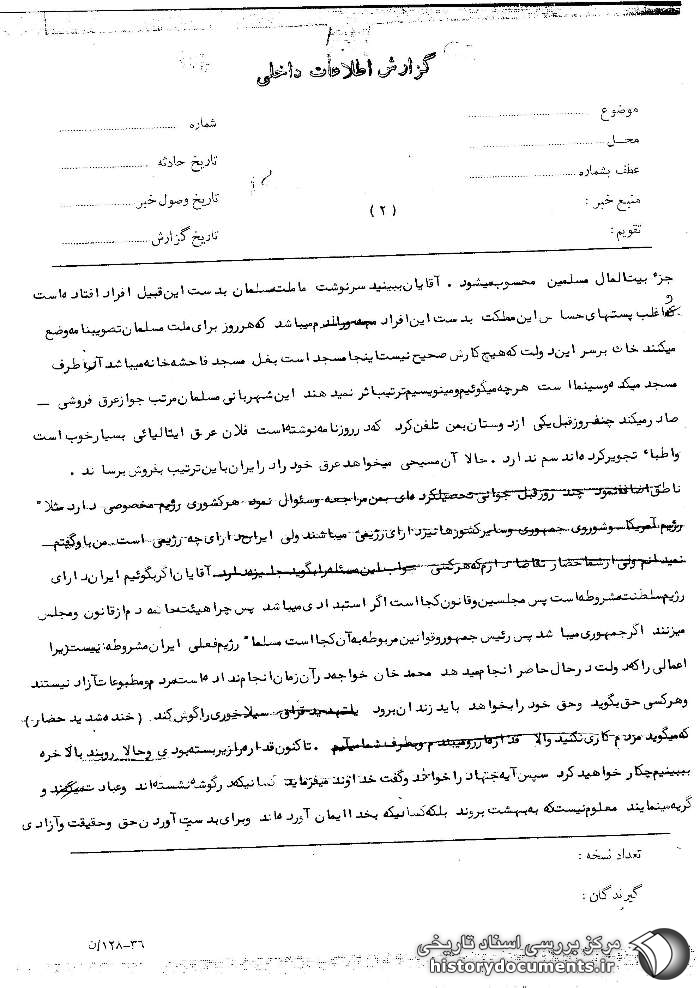 گزارش اطلاعات داخلی
موضوع
شماره
محل
تاریخ حادثه
عطف بشماره
تاریخ وصول خبر
منبع خبر :
(۲)
تقویم :
تاریخ گزارش
جزء بیت المال مسلمین محسوب میشود . آقایان ببینید سرنوشت ما ملت مسلمان بدست این قبیل افراد افتاده است
که اغلب پستهای حساس این مملکت بدست این افراد میباشد که هر روز برای ملت مسلمان تصویبنامه وضع
میکنند خاک بر سر این دولت که هیچ کارش صحیح نیست اینجا مسجد است بغل مسجد فاحشه خانه میباشد آن طرف
مسجد میکده و سینما است هرچه میگوئیم و مینویسیم ترتیب اثر نمیدهند این شهربانی مسلمان مرتب جواز عرق فروشی —
صادر میکند چند روز قبل یکی از دوستان بمن تلفن کرد که در روزنامه نوشته است فلان عرق ایتالیائی بسیار خوب است
و اطباء تجویز کرده اند سم ندارد . حالا آن مسیحی میخواهد عرق خود را در ایران باین ترتیب بفروش برساند .
ناطق اضافه نمود چند روز قبل جوانی تحصیلکرده ای بمن مراجعه و سئوال نمود هر کشوری رژیم مخصوصی دارد مثلا"
رژیم آمریکا و شوروی جمهوری و سایر کشورها نیز دارای رژیمی میباشند ولی ایران دارای چه رژیمی است من باو گفتم
نمیدانم ولی از شما حضار تقاضا دارم که هر کسی جواب این مسئله را بگوید جایزه دارد . آقایان اگر بگوئیم ایران دارای
رژیم سلطنت مشروطه است پس مجلسین و قانون کجا است اگر استبدادی میباشد پس چرا هیئت حاکمه دم از قانون و مجلس
میزنند اگر جمهوری میباشد پس رئیس جمهور و قوانین مربوطه به آن کجا است مسلما" رژیم فعلی ایران مشروطه نیست زیرا
اعمالی را که دولت در حال حاضر انجام میدهد محمد خان خواجه در آن زمان انجام نداده است مردم و مطبوعات آزاد نیستند
و هر کسی حق بگوید و حق خود را بخواهد باید زندان برود یا تهدید قزاق سیلاخوری را گوش کند (خنده شدید حضار )
که میگوید مردم کاری نکنید والا قداره را از رو میبندم و بطرف شما میآیم . تا کنون قداره را زیر بسته بودی و حالا رو ببند بالاخره
ببینیم چکار خواهید کرد سپس آیه جهاد را خواند و گفت خداوند میفرماید کسانیکه در گوشه نشسته اند و عبادت میکنند و
گریه مینمایند معلوم نیست که به بهشت بروند بلکه کسانیکه بخدا ایمان آورده اند و برای بدست آوردن حق و حقیقت و آزادی
تعداد نسخه :
گیرندگان :
۳۶-۱۲۸/ن
مرکز بررسی اسناد تاریخی
historydocuments.ir